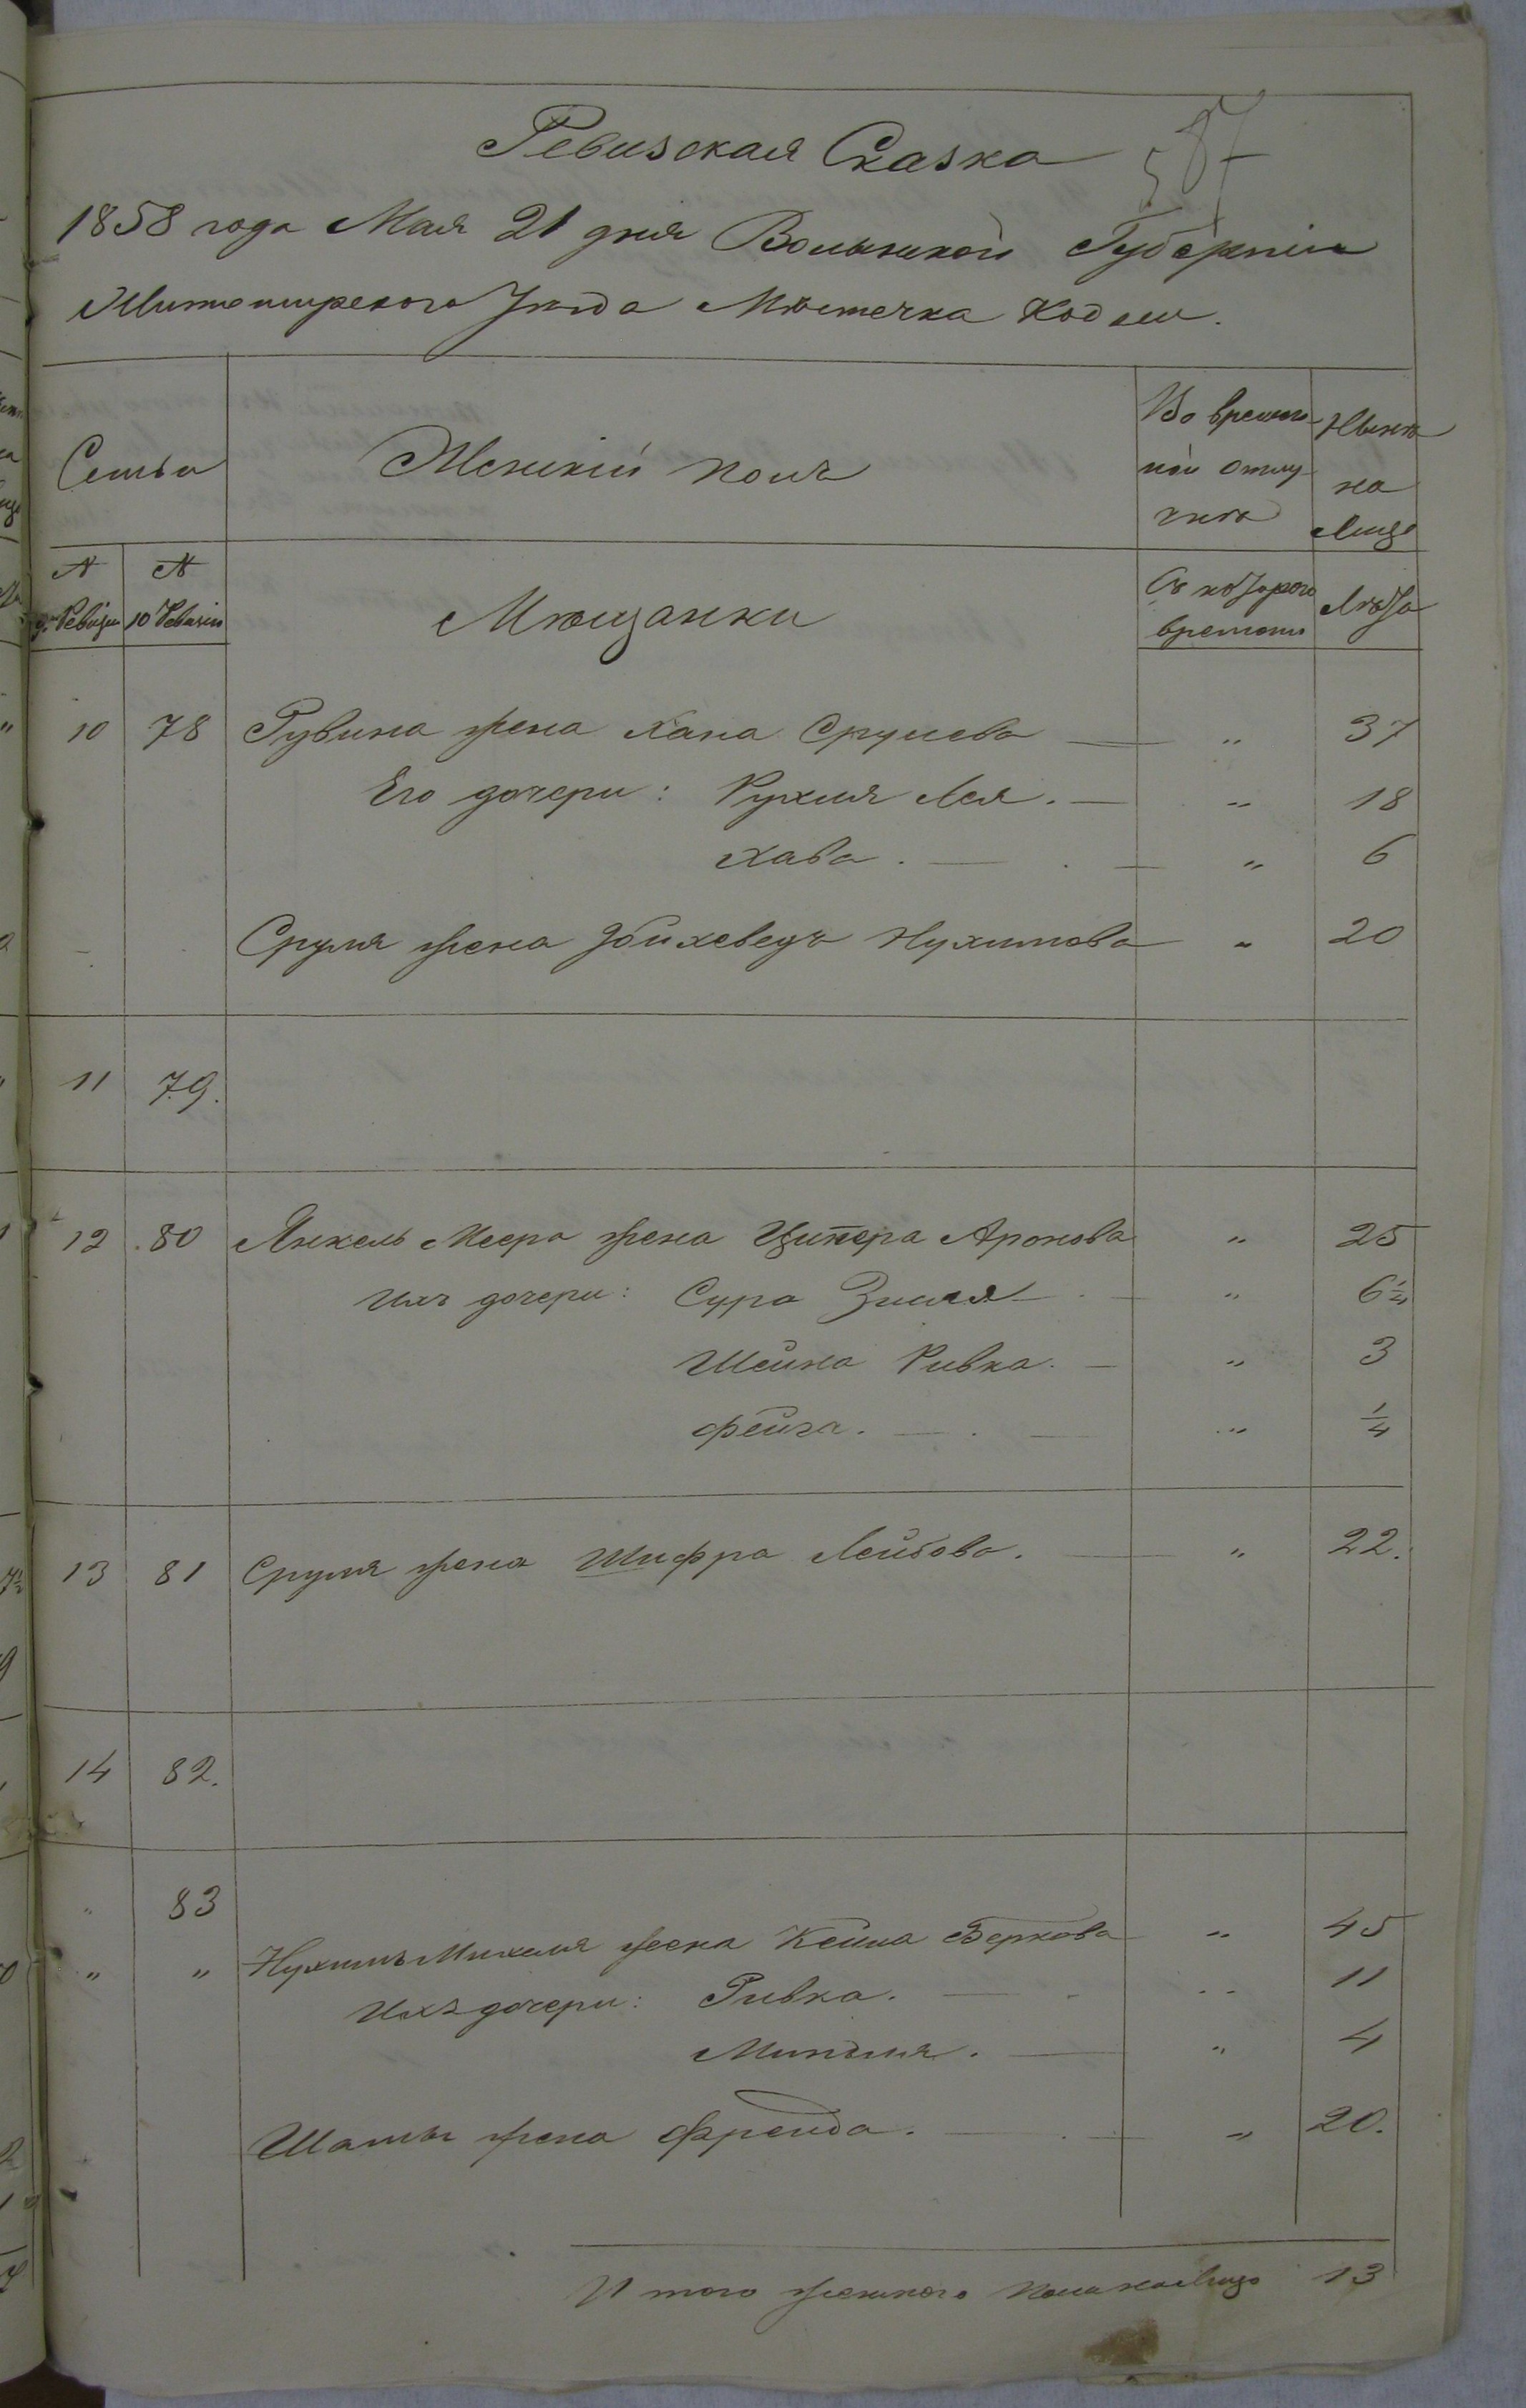 Ревизская Сказка 587
1858 года Мая 21 дня Волынской Губерніи
Житомирского Уѣзда Мѣстечка Кодни.
Семья
Женскій полъ
Во времен-
ной отлу-
чкѣ
Нынѣ
на
Лицо
№
9. Ревизіи
№
10 Ревизіи
Мѣщанки
Съ котораго
времени
Лѣта
10 78 Рувина жена Хана Срулева — " 37
Его дочери: Рухля Лея. — " 18
Хава. — " 6
Сруля жена Нухимова " 20
11 79.
12 80 Янкель Меера жена Ципера Аронова " 25
Ихъ дочери: Сура Зисля — " 6 1/4
Шейна Ривка. — " 3
Фейга. — " 1/4
13 81 Сруля жена Шифра Лейбова. — " 22.
14 82.
" 83
" " Нухимъ Михеля жена Кейла Беркова " 45
Ихъ дочери: Ривка. — " 11
Миндля. — " 4
жена Фрейда. — " 20.
Итого женского пола на лицо 13